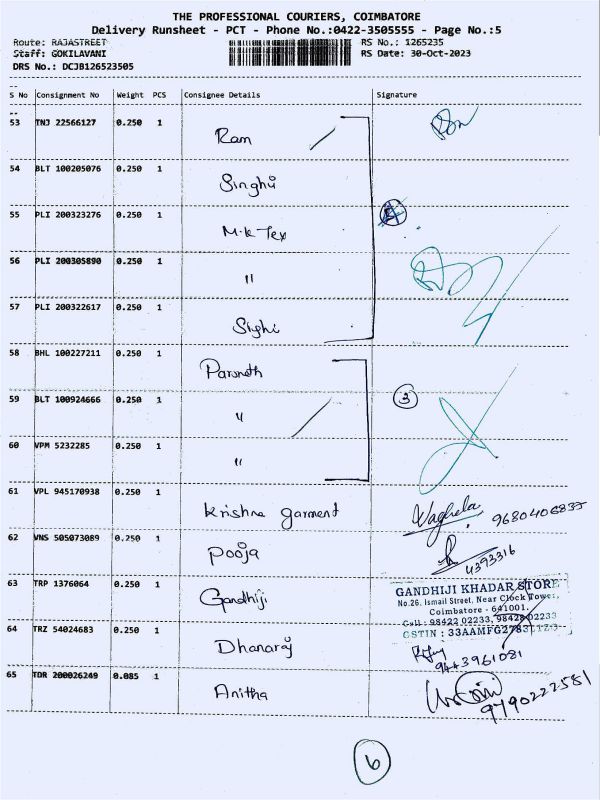 THE PROFESSIONAL COURIERS, COIMBATORE
Delivery Runsheet - PCT - Phone No.:0422-3505555 - Page No.:5
Route: RAJASTREET RS No.: 1265235
Staff: GOKILAVANI RS Date: 30-Oct-2023
DRS No.: DCJB126523505
S No Consignment No Weight PCS Consignee Details Signature
53 TNJ 22566127 0.250 1 Ram
54 BLT 100205076 0.250 1 Singhvi
55 PLI 200323276 0.250 1 M.K Tex 5
56 PLI 200305890 0.250 1 "
57 PLI 200322617 0.250 1 Sighi
58 BHL 100227211 0.250 1
59 BLT 100924666 0.250 1 " 3
60 VPM 5232285 0.250 1 "
61 VPL 945170938 0.250 1 Krishna garment Waghela
62 VNS 505073089 0.250 1 Pooja 4393316
63 TRP 1376064 0.250 1 Gandhiji
GANDHIJI KHADAR STORE
No.26, Ismail Street, Near Clock Tower,
Coimbatore - 641001.
Cell : 98422 02233, 98428 02233
GSTIN : 33AAMFG2783
64 TRZ 54024683 0.250 1 Dhanaraj 9443961081
65 TDR 200026249 0.085 1 Anitha 9790222581
6